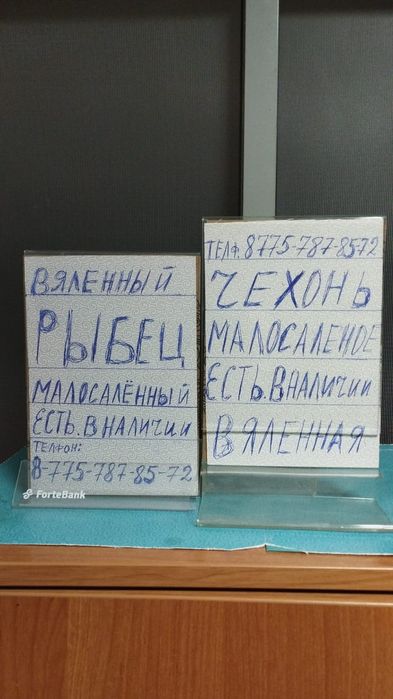 ВЯЛЕННЫЙ
РЫБЕЦ
МАЛОСАЛЁННЫЙ
ЕСТЬ.В НАЛИЧИИ
ТЕЛФОН:
8-775-787-85-72
ForteBank
ТЕЛФ. 8775-787-8572
ЧЕХОНЬ
МАЛОСАЛЕНОЕ
ЕСТЬ.В НАЛИЧИИ
ВЯЛЕННАЯ